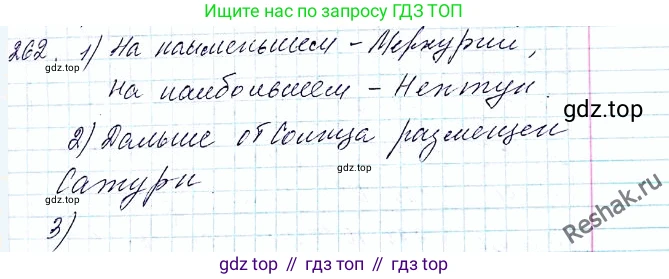 Ищите нас по запросу ГДЗ ТОП
262. 1) На наименьшем – Меркурий,
gdz.top
На наибольшем – Нептун.
gdz.top
gdz.top
2) Дальше от Солнца размещен
gdz.top
Сатурн.
3)
Reshak.ru
gdz.top // гдз.топ // gdz.top // гдз.топ